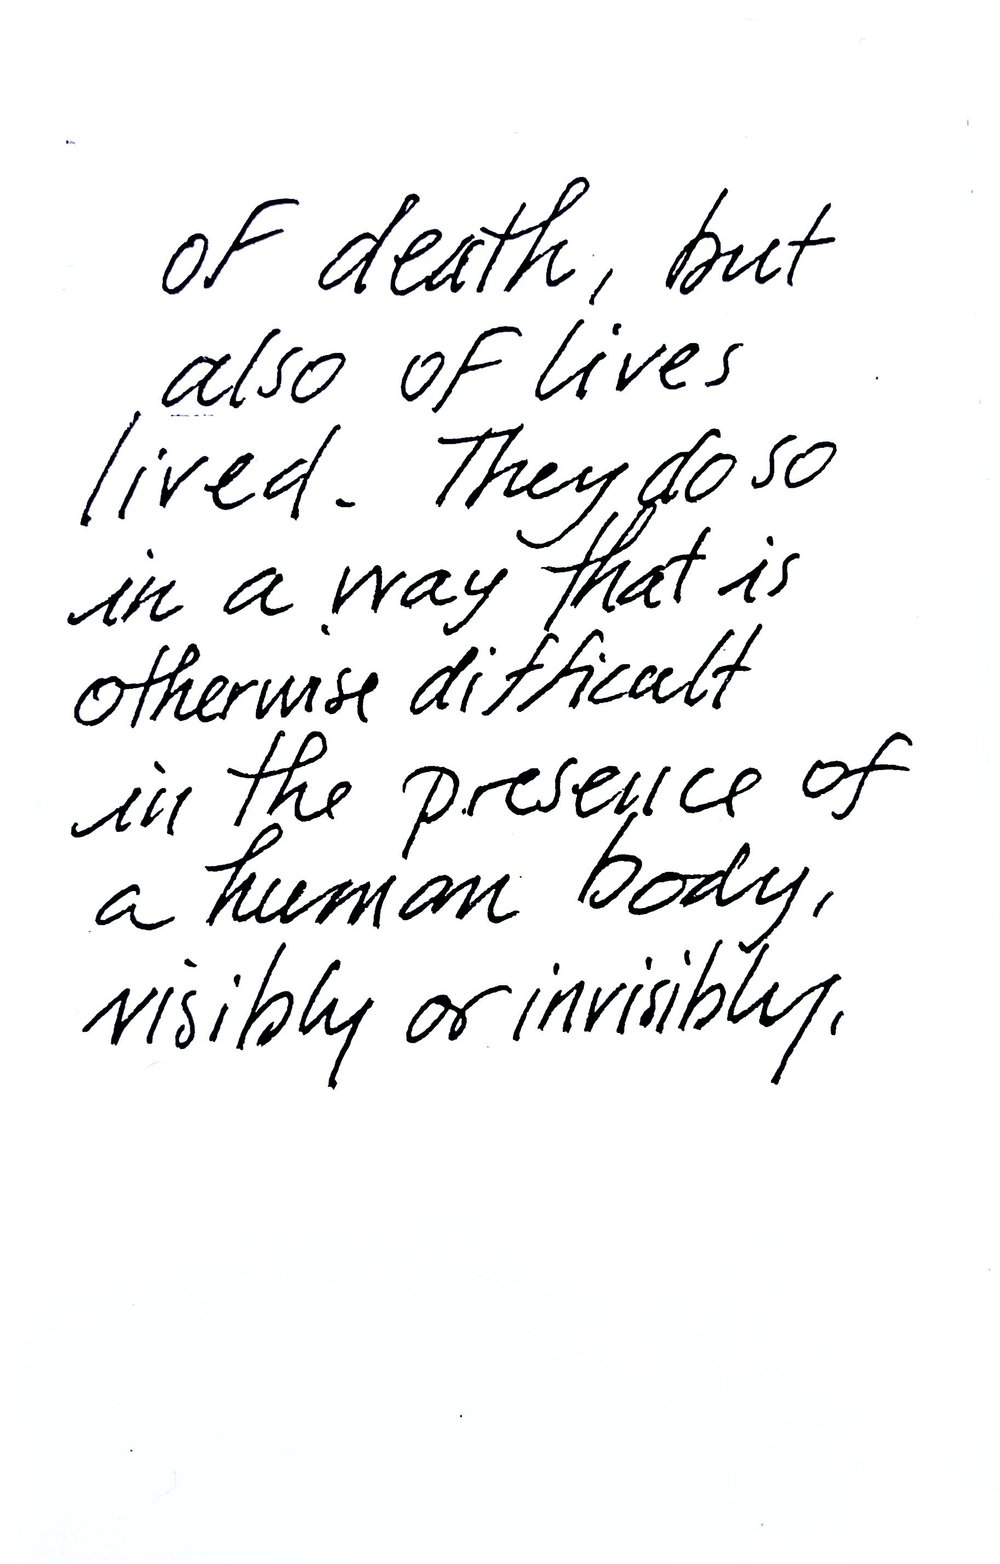 of death, but
also of lives
lived. They do so
in a way that is
otherwise difficult
in the presence of
a human body,
visibly or invisibly,